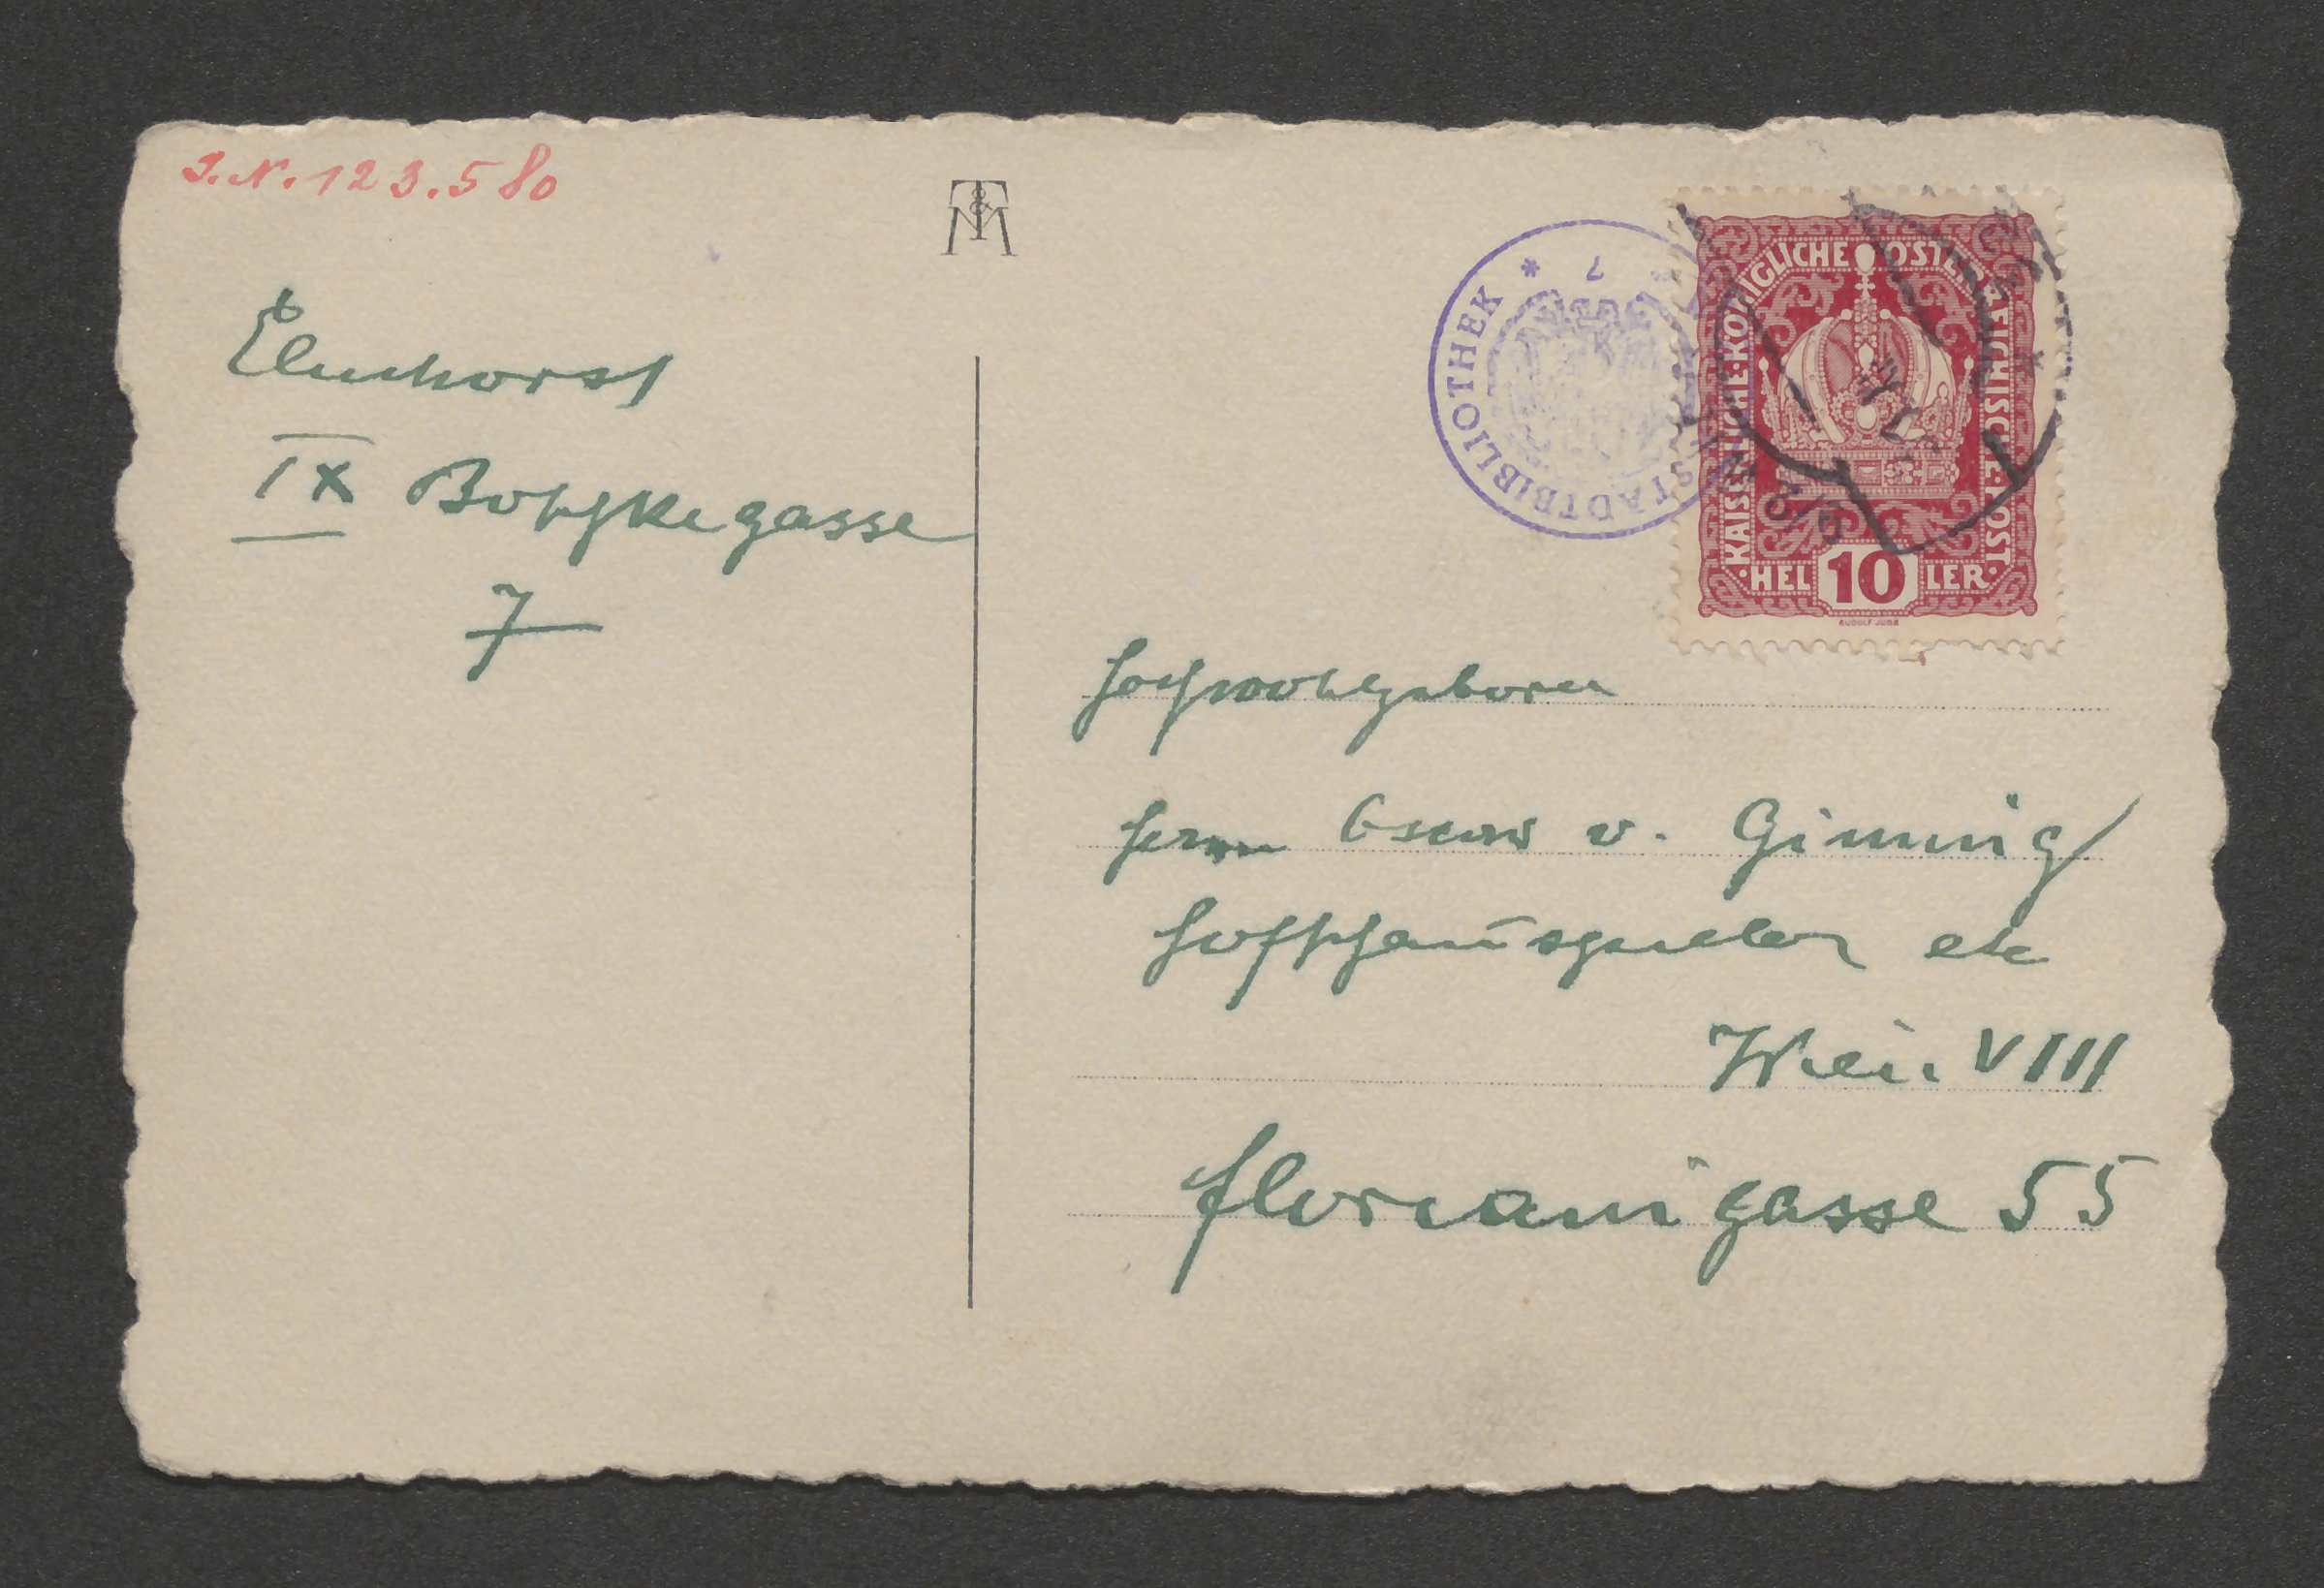 I.N. 123.580
Elmhorst
IX Botzkegasse
7
STADTBIBLIOTHEK * 7
KAISERLICHE·KÖNIGLICHE ÖSTERREICHISCHE·POST
HEL 10 LER
Hochwohlgeboren
Herrn v. Gimnig
Hofschauspieler etc
Wien VIII
Florianigasse 55